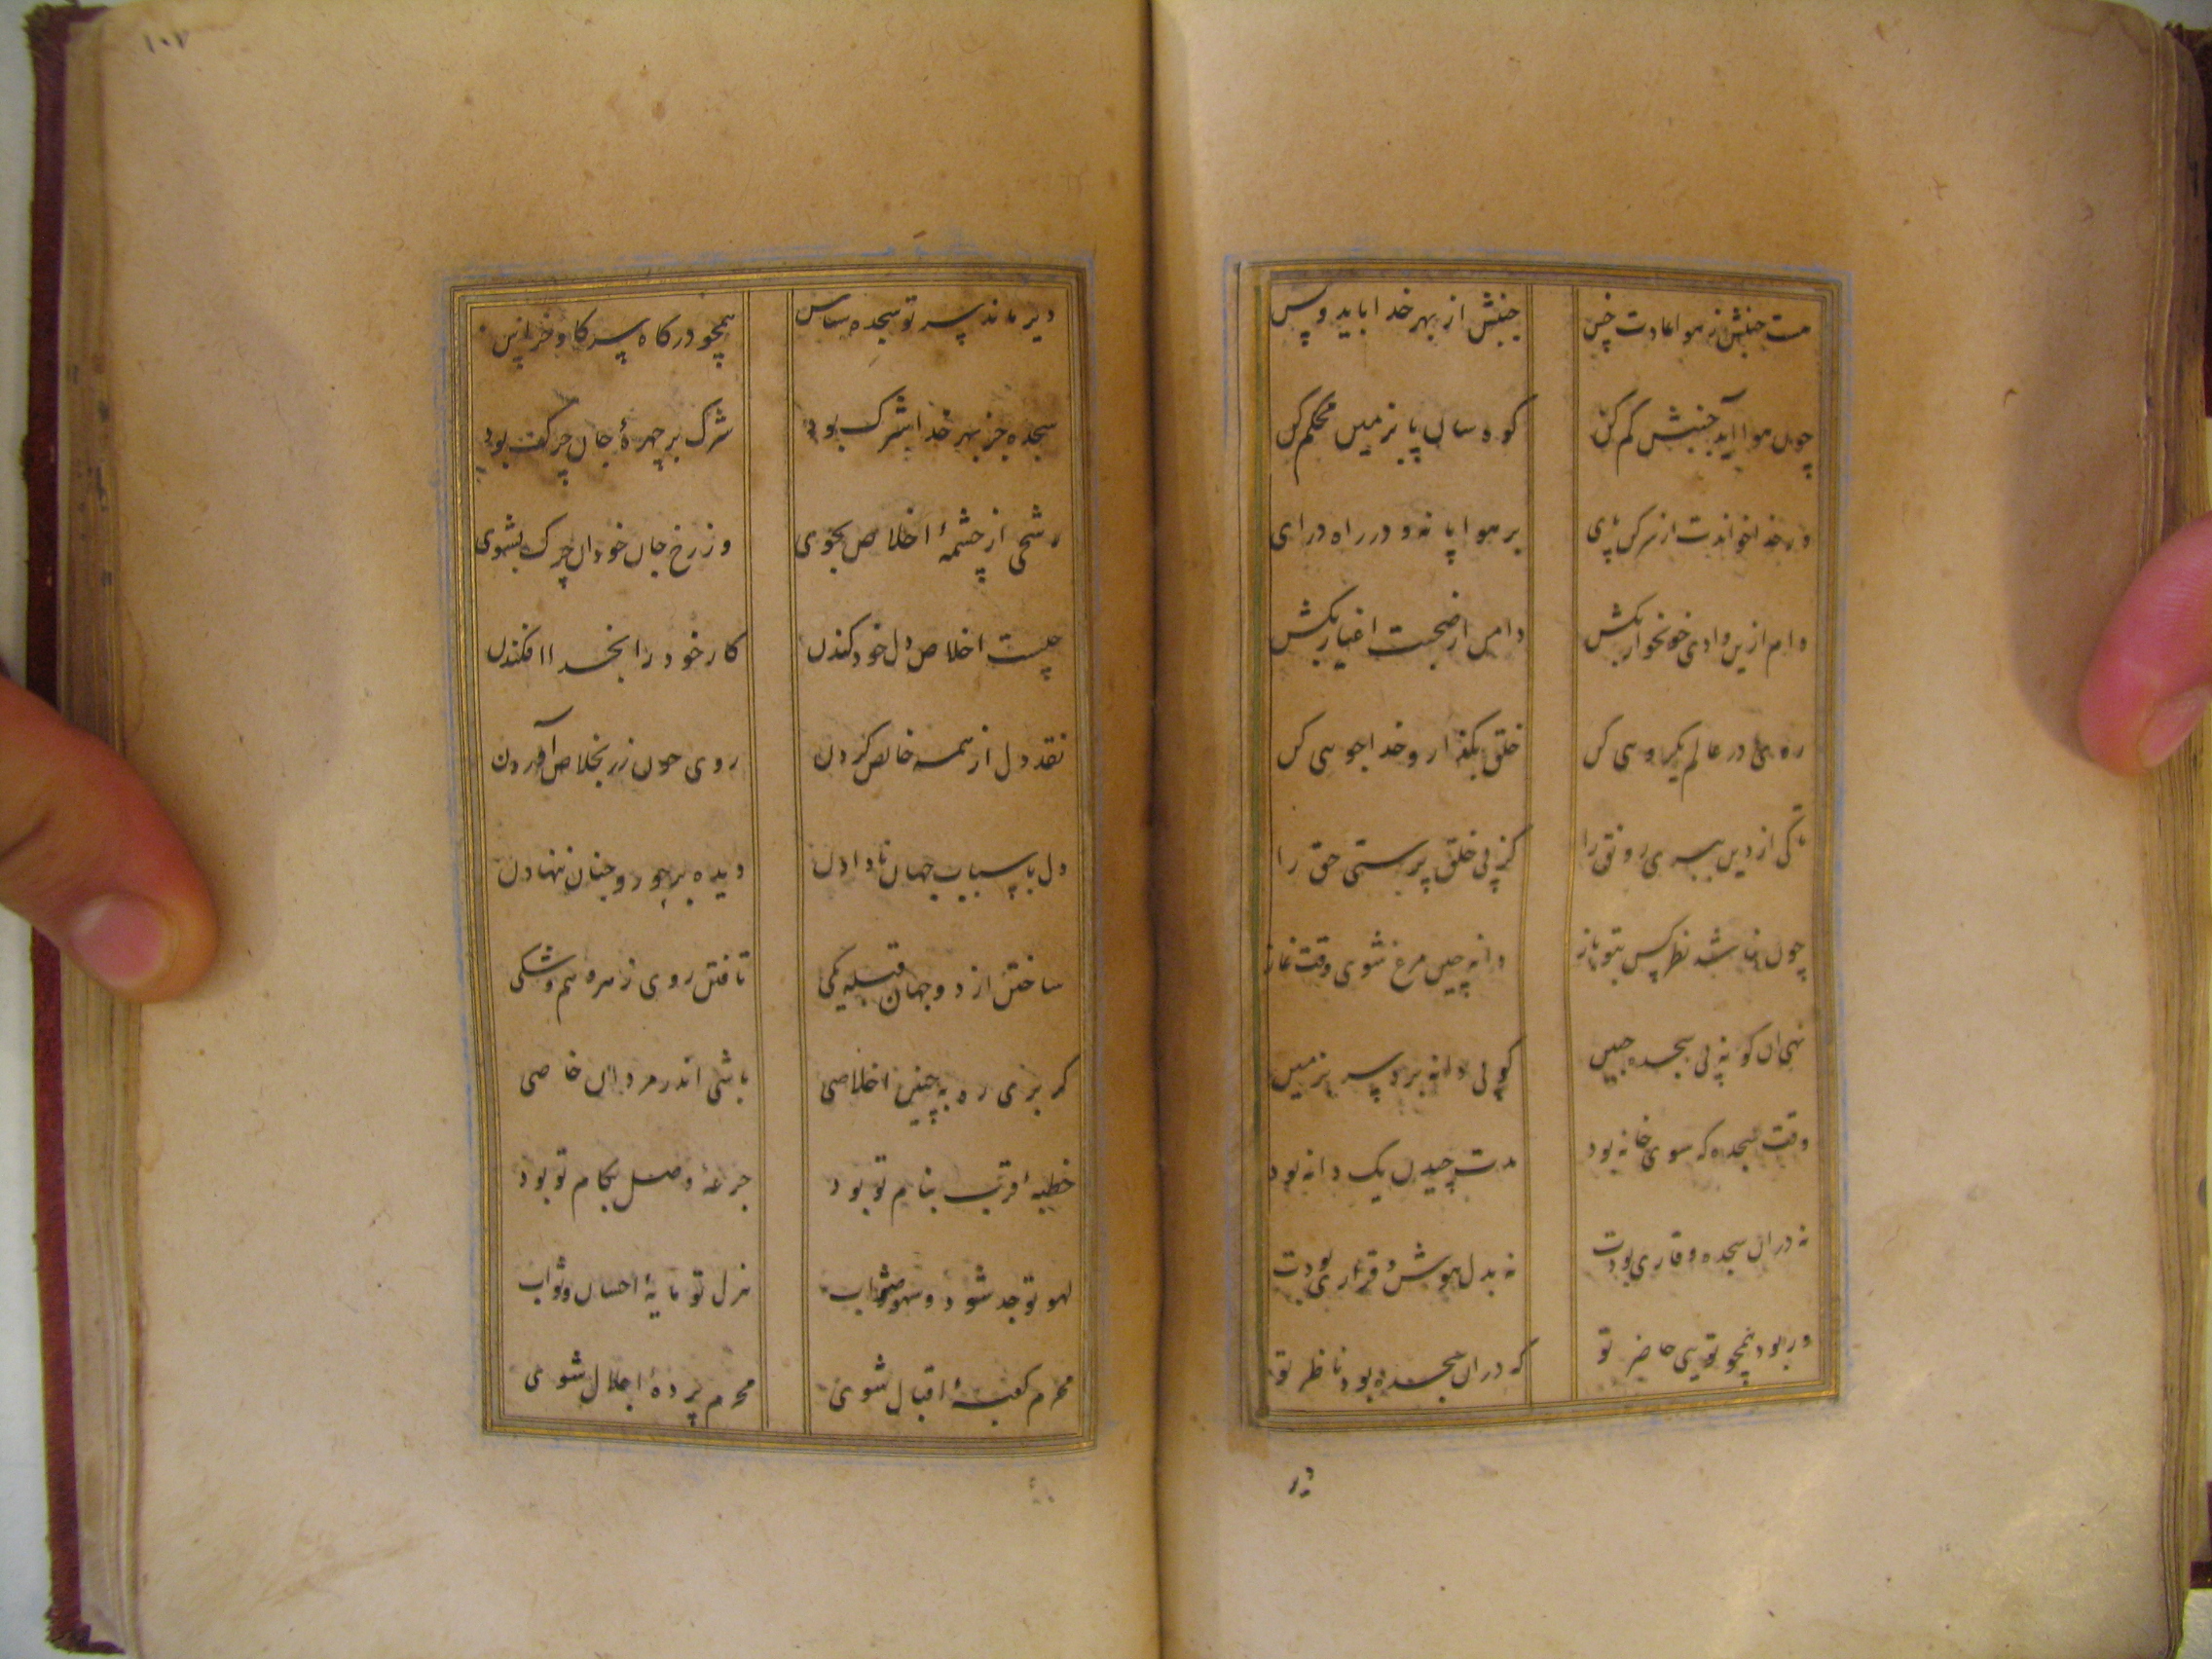 هست جنبش ز هوا عادت خس جنبش از بهر خدا باید و بس
چون هوا آید جنبش کم کن کوه سان پا بزمین محکم کن
ور خدا خواندت از سر کن پای بر هوا پا نه و در راه درای
دام ازین وادی خونخوار بکش دامن از صحبت اغیار بکش
ره در عالم یکرویی کن خلق بگذار و خداجویی کن
تا کی از دین ببری رونق را کز پی خلق پرستی حق را
چون نباشد نظر کس بتو باز دانه چین مرغ شوی وقت نماز
نهی آن گونه پی سجده جبین گویی دانه برد سر بزمین
وقت سجده که سوی خانه بود مدت چیدن یک دانه بود
نه در آن سجده وقاری بودت نه بدل هوش و قراری بودت
ور بود همچو تویی حاضر تو که در آن سجده بود ناظر تو
دیر
١٠٧
دیر ماند سر تو سجده شناس همچو در کاه سر کاو خراس
سجده جز بهر خدا شرک بود شرک بر چهرهٔ جان چرک بود
رشحی از چشمهٔ اخلاص بجوی وز رخ جان خود آن چرک بشوی
چیست اخلاص دل خود کندن کار خود را بخدا افکندن
نقد دل از همه خالص کردن روی چون زر بخلاص آوردن
دل باسباب جهان نادادن دیده بر حور و جنان ننهادن
ساختن از دو جهان قبله یکی تافتن روی ز هر وهم و شکی
کر بری ره به چنین اخلاصی باشی اندر مردان خاصی
خطبه اقرب بنام تو بود جرعهٔ وصل بکام تو بود
لهو تو جد شود و سهو صواب هزل تو مایهٔ احسان و ثواب
محرم کعبهٔ اقبال شوی محرم پردهٔ اجلال شوی